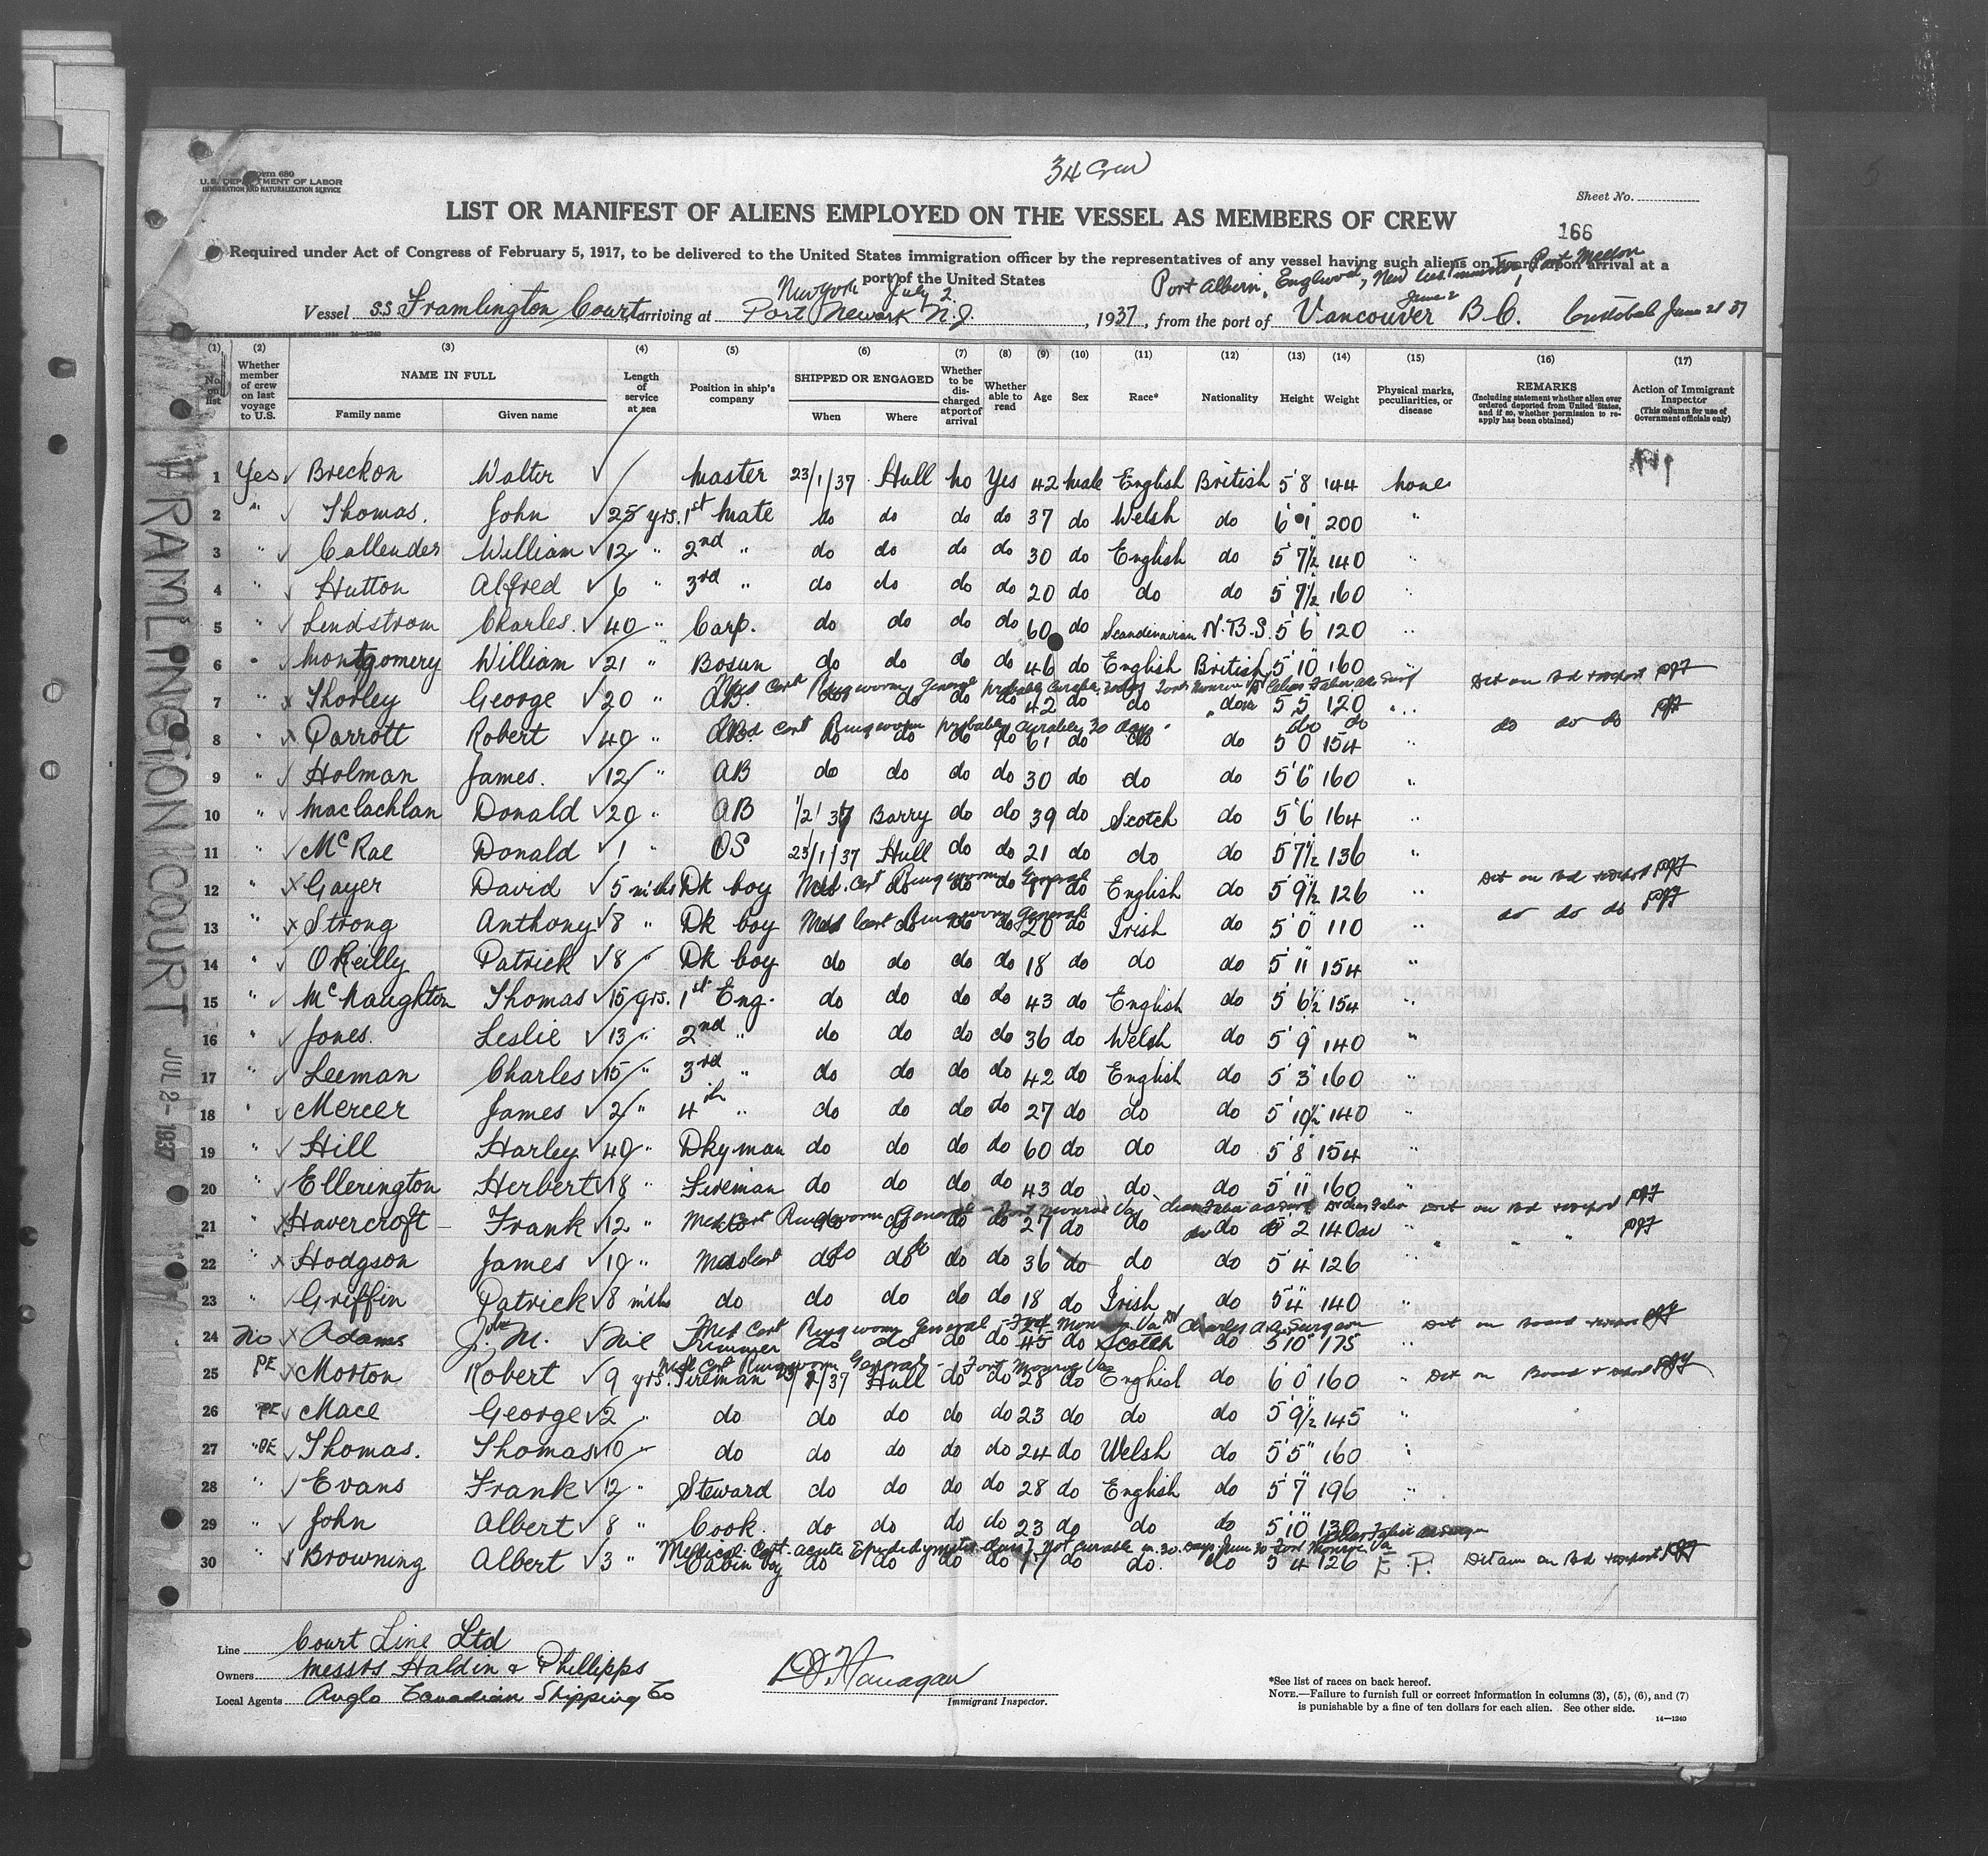 34 Crew
Form 680
U.S. DEPARTMENT OF LABOR
IMMIGRATION AND NATURALIZATION SERVICE
Sheet No.
LIST OR MANIFEST OF ALIENS EMPLOYED ON THE VESSEL AS MEMBERS OF CREW
166
Required under Act of Congress of February 5, 1917, to be delivered to the United States immigration officer by the representatives of any vessel having such aliens on board upon arrival at a
port of the United States
New York July 2 Port Alberni, Englewood, New Westminster, Port Mellon
Vessel SS Framlington Court, arriving at Port Newark N.J., 1937, from the port of Vancouver June 2 B.C. Cristobal June 21 37
(1) (2) (3) (4) (5) (6) (7) (8) (9) (10) (11) (12) (13) (14) (15) (16) (17)
No. on list
Whether member of crew on last voyage to U.S.
NAME IN FULL
Family name Given name
Length of service at sea
Position in ship's company
SHIPPED OR ENGAGED
When Where
Whether to be discharged at port of arrival
Whether able to read
Age
Sex
Race*
Nationality
Height
Weight
Physical marks, peculiarities, or disease
REMARKS
(Including statement whether alien ever ordered deported from United States, and if so, whether permission to reapply has been obtained)
Action of Immigrant Inspector
(This column for use of Government officials only)
1 Yes Breckon Walter Master 23/1/37 Hull no Yes 42 male English British 5'8 144 none
2 " Thomas. John 25 yrs. 1st Mate do do do do 37 do Welsh do 6'1 200 "
3 " Callender William 12 " 2nd " do do do do 30 do English do 5'7½ 140
4 " Hutton Alfred 6 " 3rd " do do do do 20 do do do 5'7½ 160 "
5 " Lindstrom Charles. 40 " Carp. do do do do 60 do Scandinavian N.B.S. 5'6" 120 "
6 " Montgomery William 21 " Bosun do do do do 46 do English British 5'10" 160
Med Cert Ringworm General probably curable
7 " Thorley George 20 " AB. do do do do 42 do do do 5'5 120 " Det on Bd & deport
Med Cert Ringworm probably curable 30 days do do
8 " Parrott Robert 40 " AB do do do do 61 do do do 5'0 154 " do do do
9 " Holman James. 12 " AB do do do do 30 do do do 5'6" 160 "
10 " Maclachlan Donald 20 " AB 1/2/37 Barry do do 39 do Scotch do 5'6 164 "
11 " McRae Donald 1 " OS 23/1/37 Hull do do 21 do do do 5'7½ 136 "
Med. Cert Ringworm General
12 " Gayer David 5 mths Dk boy do do do 17 do English do 5'9½ 126 " Det on Bd & deport
Med Cert Ringworm General
13 " Strong Anthony 8 " Dk boy do do do 20 do Irish do 5'0" 110 " do do do
14 " O'Reilly Patrick 8 " Dk boy do do do do 18 do do do 5'11 154 "
15 " McNaughton Thomas 15 yrs. 1st Eng. do do do do 43 do English do 5'6½ 154 "
16 " Jones. Leslie 13 " 2nd " do do do do 36 do Welsh do 5'9 140 "
17 " Leeman Charles 15 " 3rd " do do do do 42 do English do 5'3" 160 "
18 " Mercer James 2 " 4th " do do do do 27 do do do 5'10½ 140 "
19 " Hill Harley 40 " Dkyman do do do do 60 do do do 5'8" 154 "
20 " Ellerington Herbert 18 " Fireman do do do do 43 do do do 5'11" 160 "
Med Cert Ringworm General - Fort Monroe Va
21 " Havercroft Frank 12 " do do do do 27 do do do 2 140 " Det on Bd & deport
22 " Hodgson James 10 " Med Cert do do do do 36 do do do 5'4" 126 " " "
23 " Griffin Patrick 8 mths do do do do do 18 do Irish do 5'4" 140 "
Med Cert Ringworm General Fort Monroe Va Surgeon
24 No Adams J. M. Nil Trimmer do do do do 45 do Scotch do 5'10" 175 " Det on Board & deport
Med Cert Ringworm General - Fort Monroe Va
25 PE Morton Robert 9 yrs. Fireman /37 Hull do do 28 do English do 6'0" 160 " Det on Board & deport
26 "PE Mace George 2 " do do do do do 23 do do do 5'9½ 145 "
27 "PE Thomas. Thomas 10 " do do do do do 24 do Welsh do 5'5" 160 "
28 " Evans Frank 12 " Steward do do do do 28 do English do 5'7" 196 "
29 " John Albert 8 " Cook. do do do do 23 do do do 5'10" 130
Medical Cert. acute Epididymitis Class Not curable in 30 days June 30 Fort Monroe Va
30 " Browning Albert 3 " Cabin boy do do do do 17 do do. do 5'4 126 E. P. Detain on Bd & deport
FRAMLINGTON COURT JUL 2- 1937
Line Court Line Ltd
Owners Messrs Haldin & Phillipps
Local Agents Anglo Canadian Shipping Co
Immigrant Inspector.
*See list of races on back hereof.
NOTE.—Failure to furnish full or correct information in columns (3), (5), (6), and (7)
is punishable by a fine of ten dollars for each alien. See other side.
14—1240